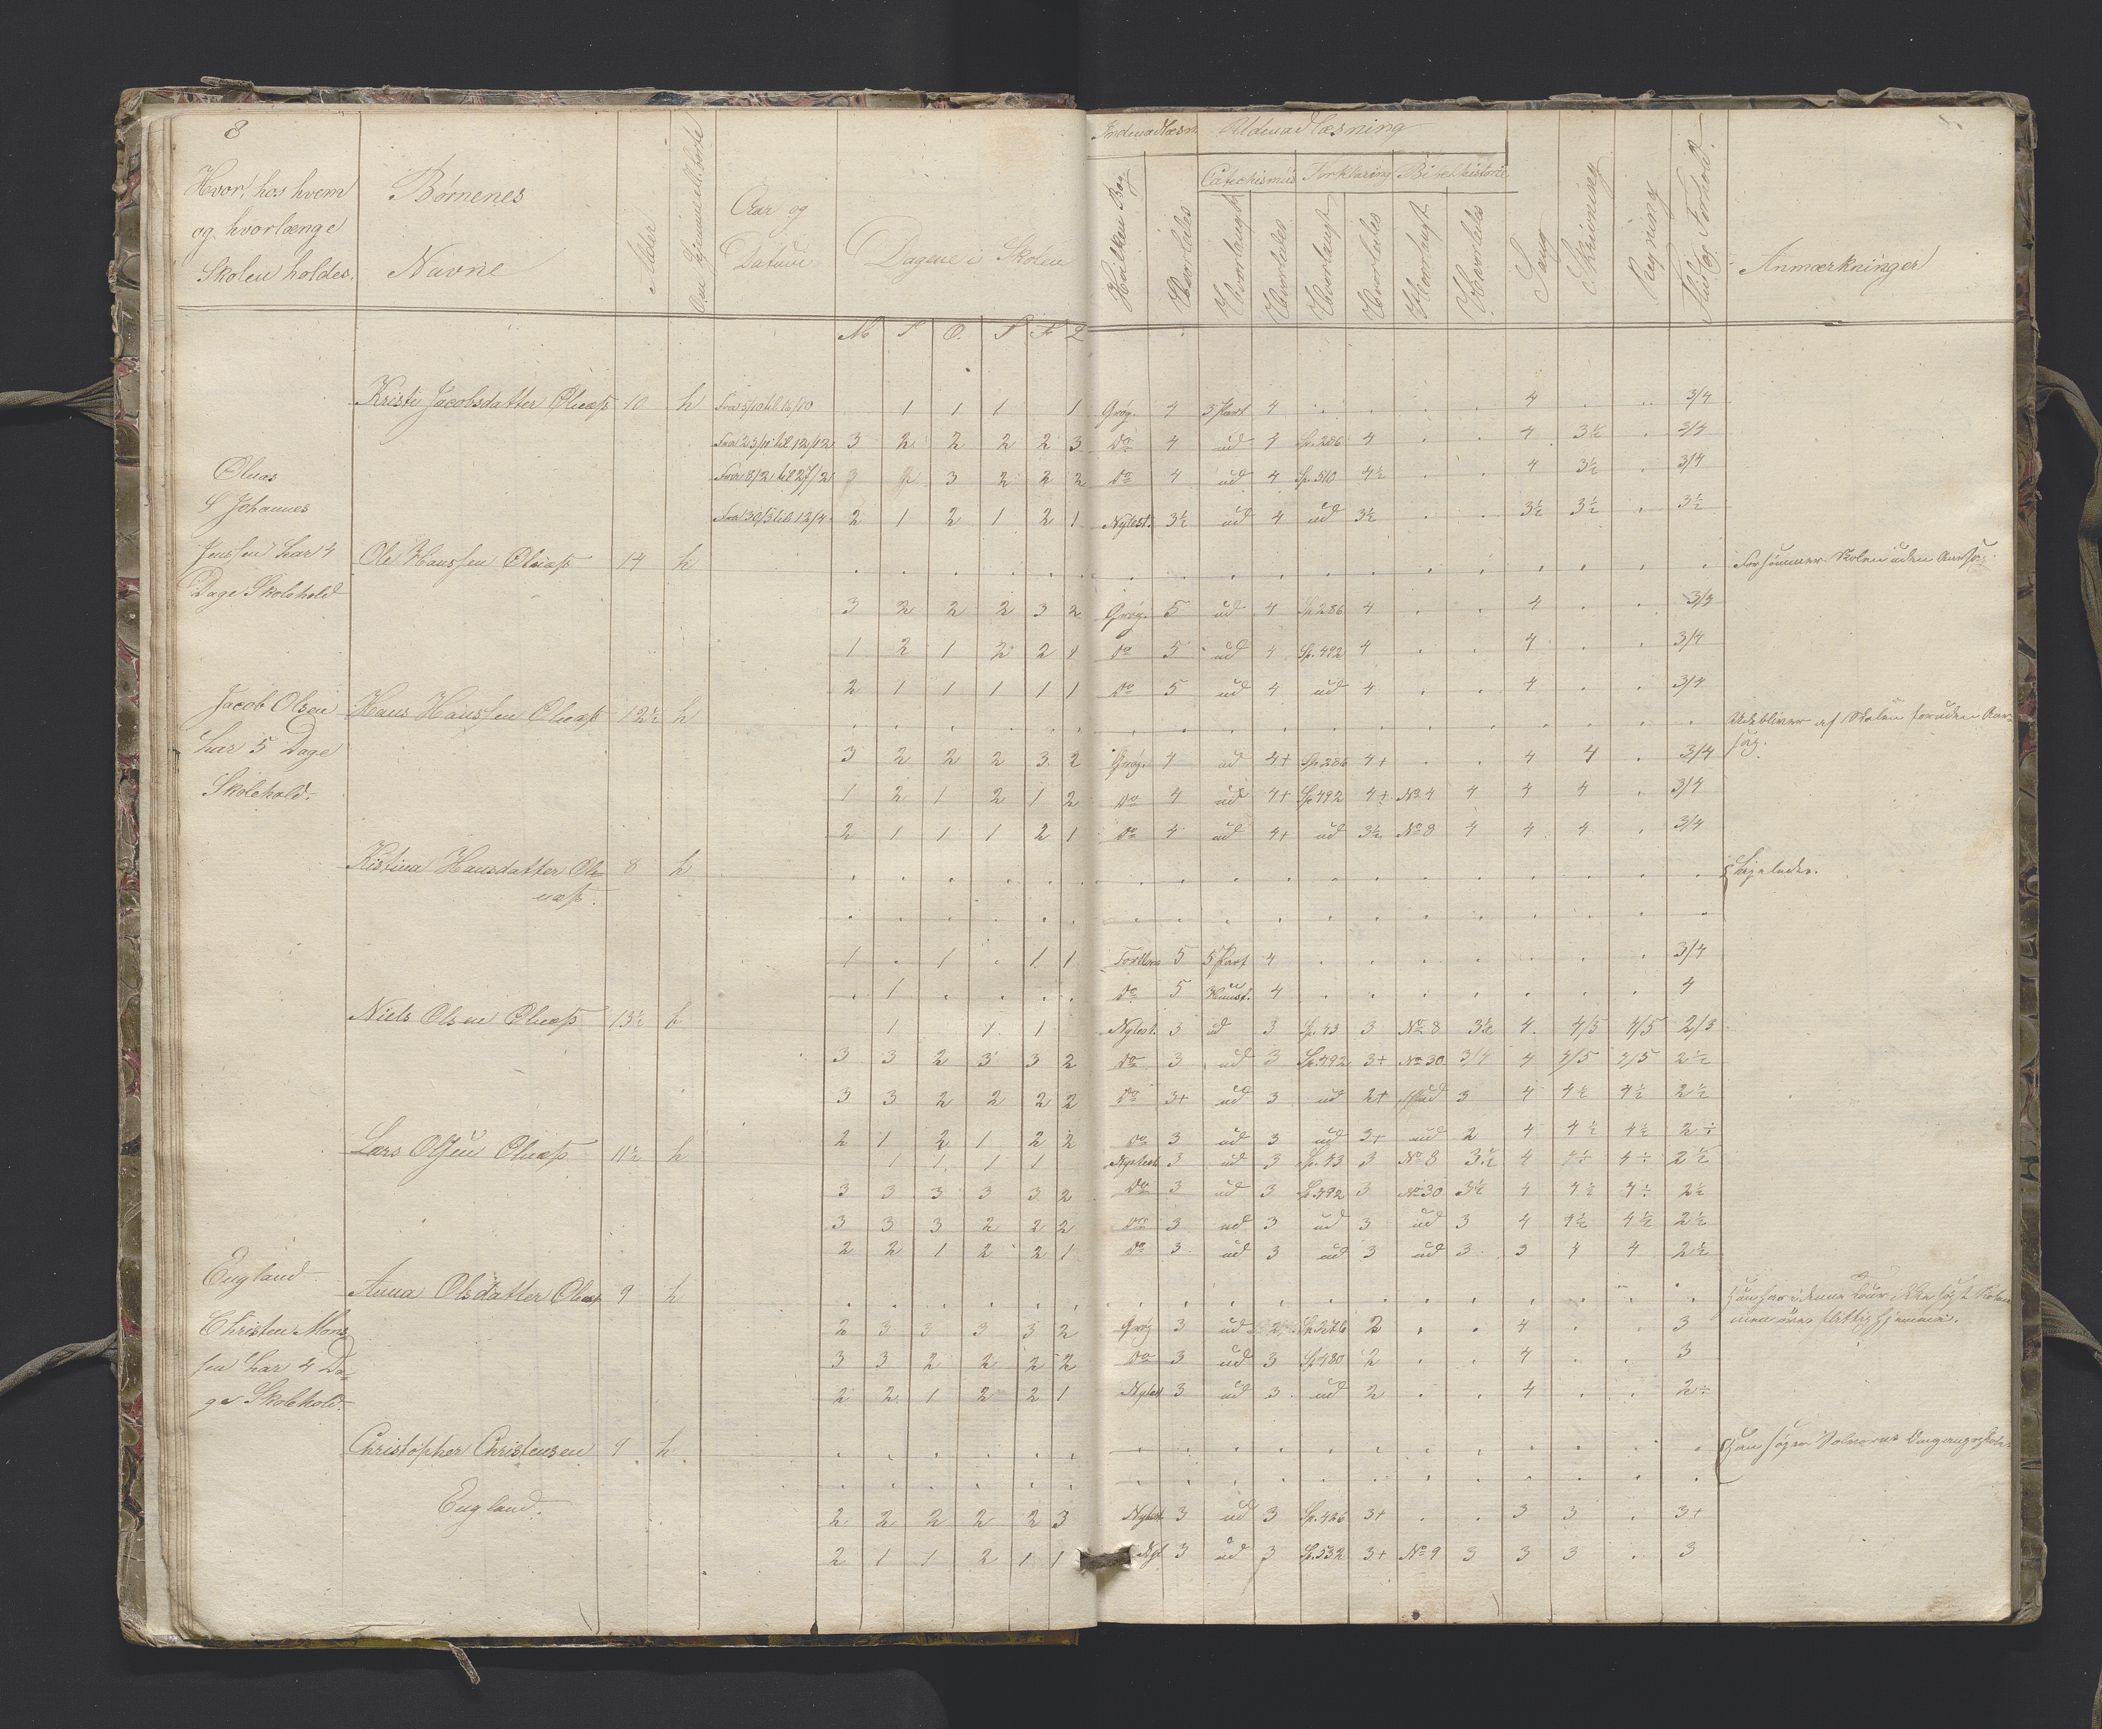 8
Hvor, hos hvem
og hvorlænge
Skolen holdes.
Børnenes
Navne
Alder
Aar og
Datum
Dagene i Skolen
M T O. T F L
Indenadlæsn.
Udenadlæsning
Catechismus Forklaring Bibelhistorie
Hvilken Bog
Hvorledes
Hvorlangt
Hvorledes
Hvorlangt
Hvorledes
Hvorlangt
Hvorledes
Sang
Skrivning
Regning
Flid og Forhold.
Anmærkninger
Jacobsdatter Olnæss 10 h Fra 5/10 til 15/10 . 1 1 1 1 Grøg. 4 3 Part 4 . . . . 4 . . 3/4
Fra 23/11 til 12/12 3 2 2 2 2 3 Do 4 ud 4 Sp. 286 4 . . 4 3½ . 3/4
Olnæs
Fra 8/2 til 27/2 3 2 3 2 2 2 Do 4 ud 4 Sp. 510 4½ . . 4 3½ . 3/4
Johannes
Fra 30/3 til 12/4 2 1 2 1 2 1 Nylest. 3½ ud 4 ud 3½ . . 3½ 3½ . 3½
Jenssen har 4
Ole Hanssen Olnæss 14 h . . . . . . Forsømmer Skolen uden Aarsag.
Dage Skolehold
3 2 2 2 3 2 Grøg. 5 ud 4 Sp. 286 4 . . 4 . . 3/4
1 2 1 2 2 1 Do 5 ud 4 Sp. 492 4 . . 4 . . 3/4
2 1 1 1 1 1 Do 5 ud 4 ud 4 . . 4 . . 3/4
Jacob Olsen
Hans Hanssen Olnæss 12½ h . . . . . . Udebliver af Skolen foruden Aar-
sag.
har 5 Dage
3 2 2 2 3 2 Grøg. 4 ud 4+ Sp. 286 4+ . . 4 4 . 3/4
Skolehold.
1 2 1 2 1 2 Do 4 ud 4+ Sp. 492 4+ No 4 4 4 4 . 3/4
2 1 1 1 2 1 Do 4 ud 4+ ud 3½ No 8 4 4 4 . 3/4
Kistina Hansdatter Ol-
næss.
8 h . . . . . . Ligeledes.
. . . . . .
1 . 1 . 1 1 5 5 Part 4 . . . . . . . 3/4
. 1 . . . . Do 5 4 . . . . . . . 4
Niels Olsen Olnæss 13½ h 1 1 1 Nylest. 3 ud 3 Sp. 43 3 No 8 3½ 4 4/5 4/5 2/3
3 3 2 3 3 2 Do 3 ud 3 Sp. 492 3+ No 30 3/4 4 3/5 3/5 2½
3 3 2 2 2 2 Do 3+ ud 3 ud 2+ ud 3 4 4½ 4½ 2½
2 1 2 1 2 2 Do 3 ud 3 ud 3+ ud 2 4 4½ 4½ 2÷
Lars Olsen Olnæss 11½ h 1 1 1 1 Nylest. 3 ud 3 Sp. 43 3 No 8 3½ 4 4÷ 4÷ 2½
3 3 3 3 3 2 Do 3 ud 3 Sp. 492 3 No 30 3½ 4 4½ 4÷ 2½
3 3 3 2 2 2 Do 3 ud 3 ud 3 ud 3 4 4½ 4½ 2½
2 2 1 2 2 1 Do 3 ud 3 ud 3 ud 3 3 4 4 2½
England
Anna Olsdatter Olnæss 9 h . . . . . . Hun har i denne Tour ikke søgt Skolen
men øves flittig hjemme.
Christen Mons
2 3 3 3 3 2 Grøg 3 ud 2 Sp. 276 2 . . 4 . . 3
sen har 4 Da-
3 3 2 2 2 2 Do 3 ud 3 Sp. 480 2 . . 4 . . 3
ge Skolehold.
2 2 1 2 2 1 Nylest 3 ud 3 ud 2 . . 4 . . 2÷
Christopher Christensen
England.
9 h . . . . . . Han søger Omgangsskole
. . . . . .
2 2 2 2 2 3 Nylest 3 ud 3 Sp. 426 3+ . . 3 3 . 3+
2 1 1 2 1 1 Nyl 3 ud 3 Sp. 532 3+ No 9 3 3 3 . 3